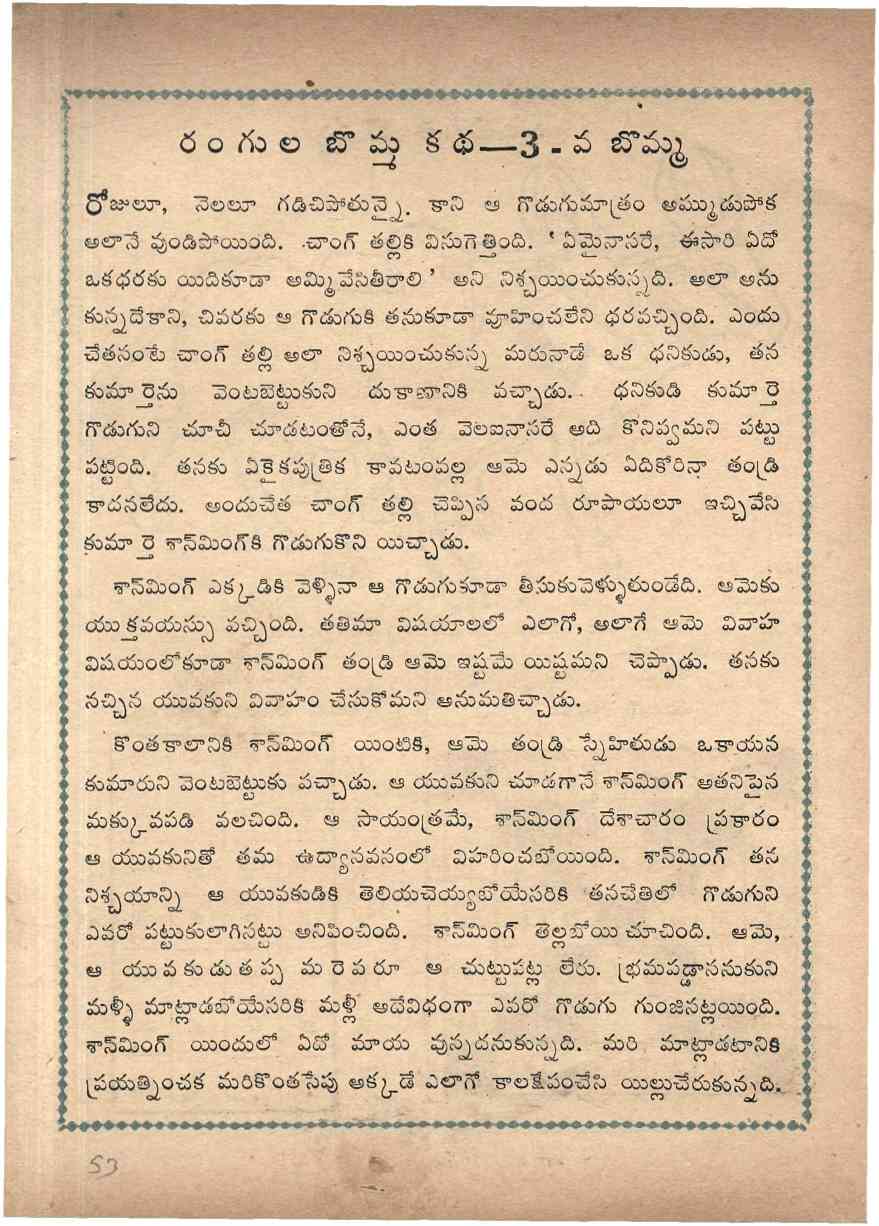 రంగుల బొమ్మ కథ—3-వ బొమ్మ
రోజులూ, నెలలూ గడిచిపోతున్నై. కాని ఆ గొడుగుమాత్రం అమ్ముడుపోక
అలానే వుండిపోయింది. చాంగ్ తల్లికి విసుగెత్తింది. ‘ఏమైనాసరే, ఈసారి ఏదో
ఒకధరకు యిదికూడా అమ్మివేసితీరాలి’ అని నిశ్చయించుకున్నది. అలా అను
కున్నదేకాని, చివరకు ఆ గొడుగుకి తనుకూడా వూహించలేని ధరవచ్చింది. ఎందు
చేతనంటే చాంగ్ తల్లి అలా నిశ్చయించుకున్న మరునాడే ఒక ధనికుడు, తన
కుమార్తెను వెంటబెట్టుకుని దుకాణానికి వచ్చాడు. ధనికుడి కుమార్తె
గొడుగుని చూచీ చూడటంతోనే, ఎంత వెలఐనాసరే అది కొనివ్వమని పట్టు
పట్టింది. తనకు ఏకైకపుత్రిక కావటంవల్ల ఆమె ఎన్నడు ఏదికోరినా తండ్రి
కాదనలేదు. అందుచేత చాంగ్ తల్లి చెప్పిన వంద రూపాయలూ ఇచ్చివేసి
కుమార్తె శాన్‌మింగ్‌కి గొడుగుకొని యిచ్చాడు.
శాన్‌మింగ్ ఎక్కడికి వెళ్ళినా ఆ గొడుగుకూడా తీసుకువెళ్ళుతుండేది. ఆమెకు
యుక్తవయస్సు వచ్చింది. తతిమా విషయాలలో ఎలాగో, అలాగే ఆమె వివాహ
విషయంలోకూడా శాన్‌మింగ్ తండ్రి ఆమె ఇష్టమే యిష్టమని చెప్పాడు. తనకు
నచ్చిన యువకుని వివాహం చేసుకోమని అనుమతిచ్చాడు.
కొంతకాలానికి శాన్‌మింగ్ యింటికి, ఆమె తండ్రి స్నేహితుడు ఒకాయన
కుమారుని వెంటబెట్టుకు వచ్చాడు. ఆ యువకుని చూడగానే శాన్‌మింగ్ అతనిపైన
మక్కువపడి వలచింది. ఆ సాయంత్రమే, శాన్‌మింగ్ దేశాచారం ప్రకారం
ఆ యువకునితో తమ ఉద్యానవనంలో విహరించబోయింది. శాన్‌మింగ్ తన
నిశ్చయాన్ని ఆ యువకుడికి తెలియచెయ్యబోయేసరికి తనచేతిలో గొడుగుని
ఎవరో పట్టుకులాగినట్టు అనిపించింది. శాన్‌మింగ్ తెల్లబోయి చూచింది. ఆమె,
ఆ యువకుడుతప్ప మరెవరూ ఆ చుట్టుపట్ల లేరు. భ్రమపడ్డాననుకుని
మళ్ళీ మాట్లాడబోయేసరికి మళ్లీ అదేవిధంగా ఎవరో గొడుగు గుంజినట్లయింది.
శాన్‌మింగ్ యిందులో ఏదో మాయ వున్నదనుకున్నది. మరి మాట్లాడటానికి
ప్రయత్నించక మరికొంతసేపు అక్కడే ఎలాగో కాలక్షేపంచేసి యిల్లుచేరుకున్నది.
53